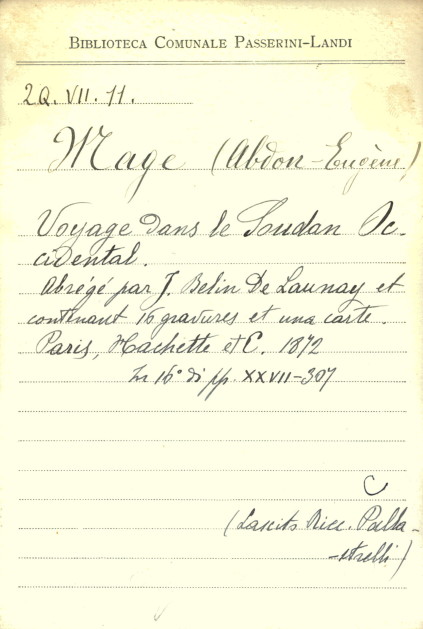 BIBLIOTECA COMUNALE PASSERINI-LANDI
2Q. VII. 11.
Mage (Abdon-Eugène)
Voyage dans le Soudan Oc-
cidental.
Abrégé par J. Belin De Launay et
contenant 16 gravures et una carte.
Paris, Hachette et C. 1872
In 16° di pp. XXVII-307
C
(Lascito Ricc. Palla-
-strelli)